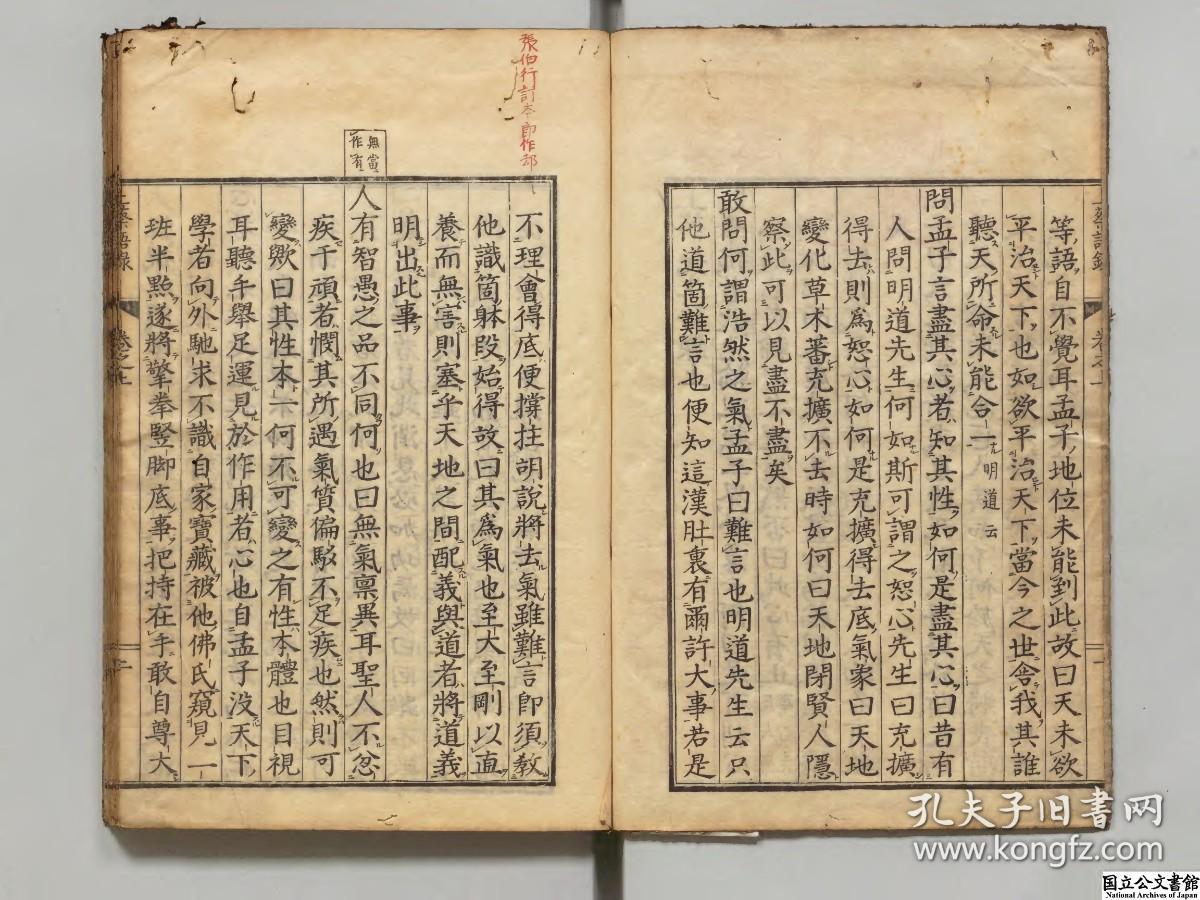 等語自不覺耳孟子地位未能到此故曰天未欲
平治天下也如欲平治天下當今之世舍我其誰
聽天所命未能合一明道云
問孟子言盡其心者知其性如何是盡其心曰昔有
人問明道先生何如斯可謂之恕心先生曰充擴
得去則為恕心如何是充擴得去底氣象曰天地
變化草木蕃充擴不去時如何曰天地閉賢人隱
察此可以見盡不盡矣
敢問何謂浩然之氣孟子曰難言也明道先生云只
他道箇難言也便知這漢肚裏有爾許大事若是
上蔡語錄 卷之上
張伯行訂本即作却
不理會得底便撐拄胡說將去氣雖難言即須教
他識箇躰段始得故曰其為氣也至大至剛以直
養而無害則塞乎天地之間配義與道者將道義
明出此事
無當作有
人有智愚之品不同何也曰無氣禀異耳聖人不忿
疾于頑者憫其所遇氣質偏駁不足疾也然則可
變歟曰其性本一何不可變之有性本體也目視
耳聽手舉足運見於作用者心也自孟子沒天下
學者向外馳求不識自家寶藏被他佛氏窺見一
班半點遂將擎拳豎脚底事把持在手敢自尊大
上蔡語錄 卷之上 二
孔夫子旧书网
www.kongfz.com
国立公文書館
National Archives of Japan